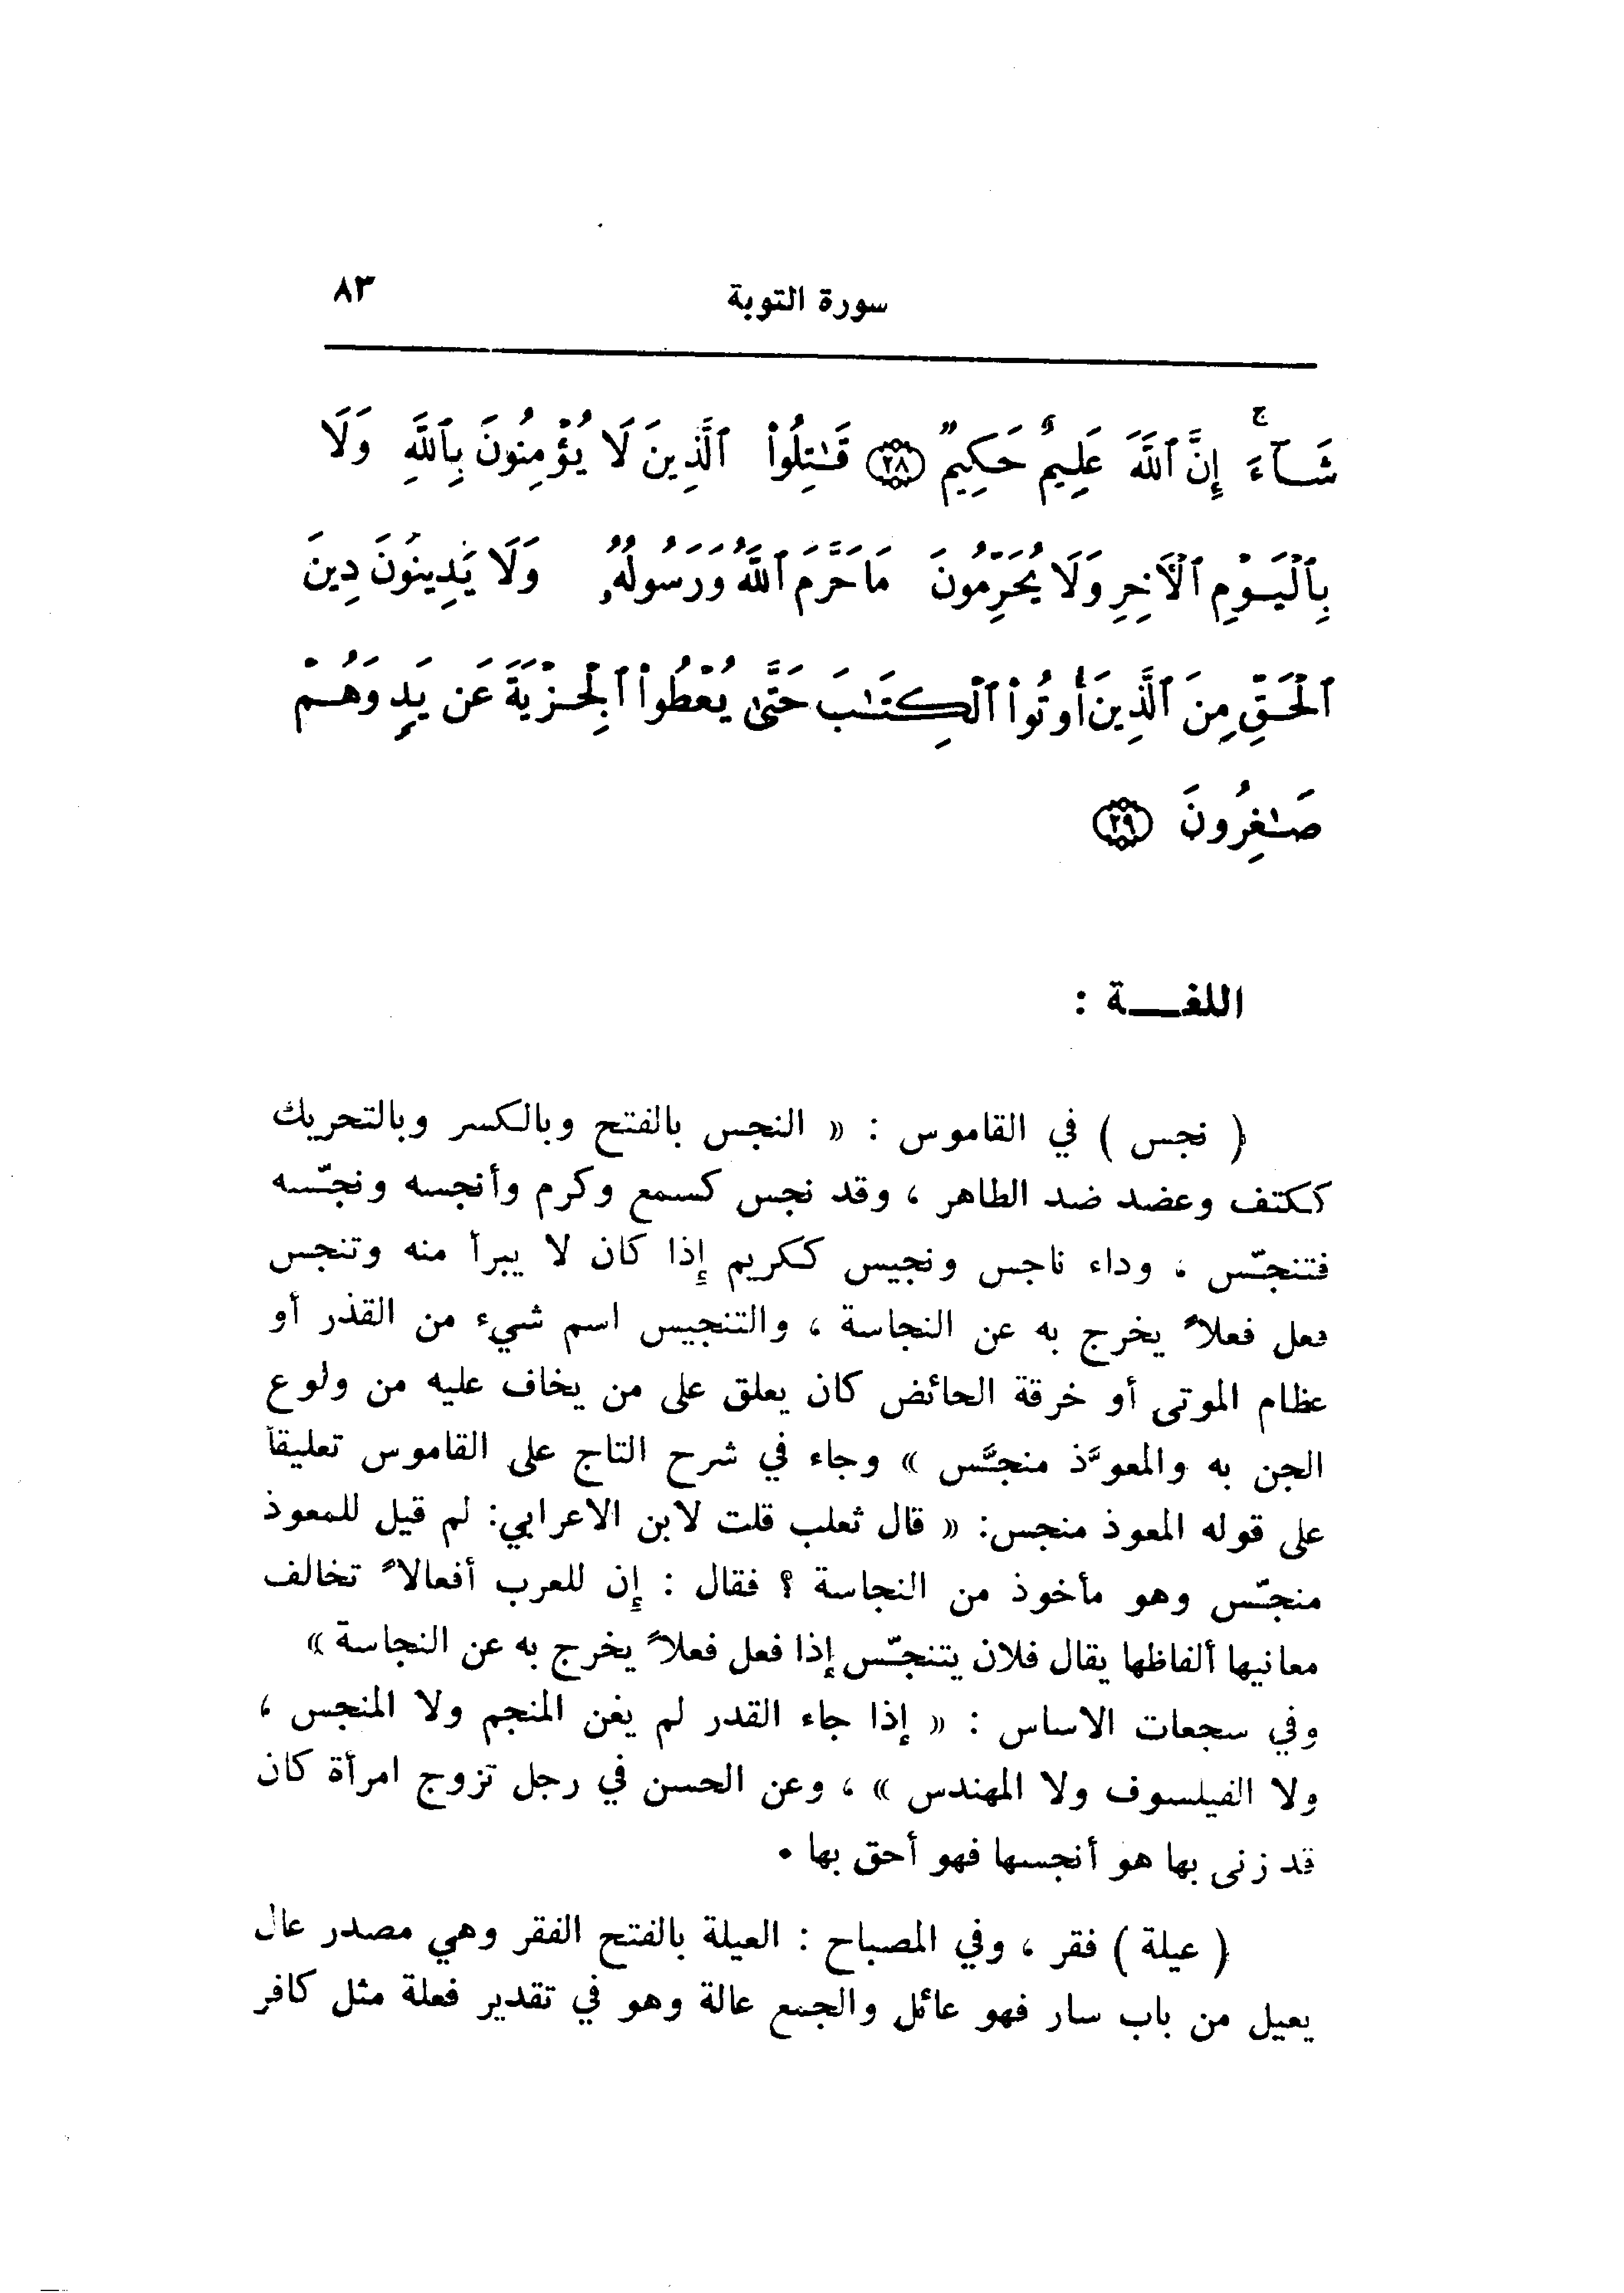 سورة التوبة ٨٣
شَآءَ ۚ إِنَّ ٱللَّهَ عَلِيمٌ حَكِيمٌ ﴿٢٨﴾ قَـٰتِلُوا۟ ٱلَّذِينَ لَا يُؤْمِنُونَ بِٱللَّهِ وَلَا
بِٱلْيَوْمِ ٱلْأَخِرِ وَلَا يُحَرِّمُونَ مَا حَرَّمَ ٱللَّهُ وَرَسُولُهُۥ وَلَا يَدِينُونَ دِينَ
ٱلْحَقِّ مِنَ ٱلَّذِينَ أُوتُوا۟ ٱلْكِتَـٰبَ حَتَّىٰ يُعْطُوا۟ ٱلْجِزْيَةَ عَن يَدٍ وَهُمْ
صَـٰغِرُونَ ﴿٢٩﴾
اللغـــة :
( نجس ) في القاموس : « النجس بالفتح وبالكسر وبالتحريك
ككتف وعضد ضد الطاهر ، وقد نجس كسمع وكرم وأنجسه ونجّسه
فتنجّس ، وداء ناجس ونجيس ككريم إذا كان لا يبرأ منه وتنجس
فعل فعلاً يخرج به عن النجاسة ، والتنجيس اسم شيء من القذر أو
عظام الموتى أو خرقة الحائض كان يعلق على من يخاف عليه من ولوع
الجن به والمعوَّذ منجَّس » وجاء في شرح التاج على القاموس تعليقاً
على قوله المعوذ منجس: « قال ثعلب قلت لابن الاعرابي: لم قيل للمعوذ
منجّس وهو مأخوذ من النجاسة ؟ فقال : إن للعرب أفعالاً تخالف
معانيها ألفاظها يقال فلان يتنجّس إذا فعل فعلاً يخرج به عن النجاسة »
وفي سجعات الاساس : « إذا جاء القدر لم يغن المنجم ولا المنجس ،
ولا الفيلسوف ولا المهندس » ، وعن الحسن في رجل تزوج امرأة كان
قد زنى بها هو أنجسها فهو أحق بها •
( عيلة ) فقر ، وفي المصباح : العيلة بالفتح الفقر وهي مصدر عال
يعيل من باب سار فهو عائل والجمع عالة وهو في تقدير فعلة مثل كافر